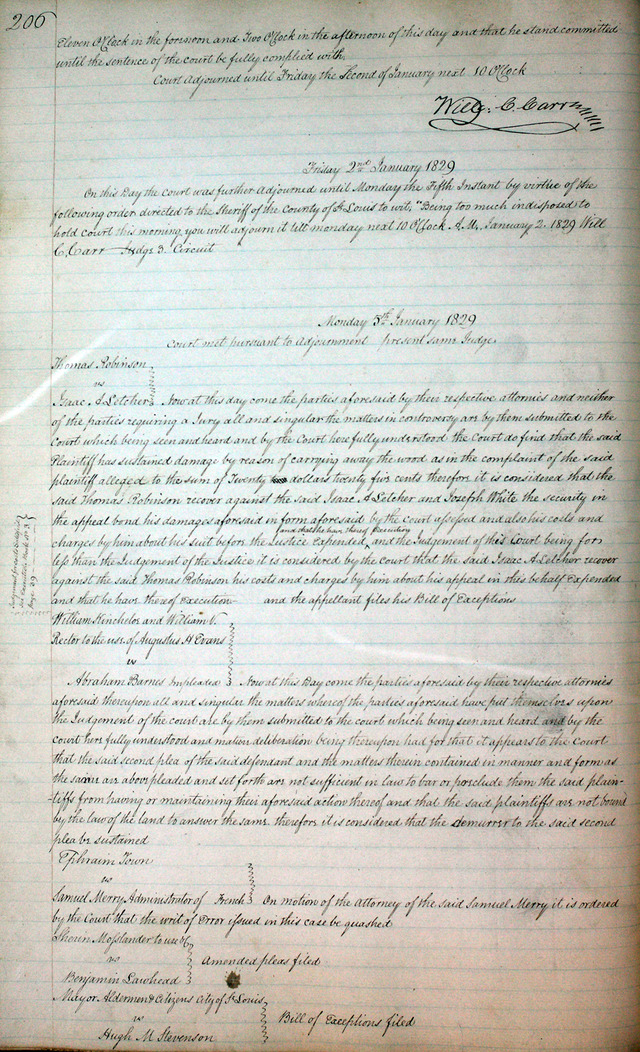 206
Eleven O'Clock in the forenoon and Two O'Clock in the afternoon of this day and that he stand committed
until the sentence of the court be fully complied with.
Court Adjourned until Friday the Second of January next 10 O'Clock
Will. C. Carr
Friday 2nd January 1829
On this Day the Court was further Adjourned until Monday the Fifth Instant by virtue of the
following order directed to the Sheriff of the County of St Louis to wit, "Being too much indisposed to
hold court this morning, you will adjourn it till monday next 10 O'Clock A.M., January 2. 1829 Will
C. Carr Judge 3 Circuit
Monday 5th January 1829
Court met pursuant to Adjournment present same Judge
Thomas Robinson
vs
Isaac A Letcher Now at this day come the parties aforesaid by their respective attornies and neither
of the parties requiring a Jury all and singular the matters in controversy are by them submitted to the
Court which being seen and heard and by the Court here fully understood the Court do find that the said
Plaintiff has sustained damage by reason of carrying away the wood as in the complaint of the said
plaintiff alleged to the sum of Twenty dollars twenty five cents therefore it is considered that the
said Thomas Robinson recover against the said Isaac A Letcher and Joseph White the security in
the appeal bond his damages aforesaid in form aforesaid by the court assessed and also his costs and
charges by him about his suit before the Justice Expended and that he have thereof Execution, and the Judgement of this Court being for
less than the Judgement of the Justice it is considered by the Court that the said Isaac A Letcher recover
against the said Thomas Robinson his costs and charges by him about his appeal in this behalf Expended
and that he have thereof Execution and the appellant files his Bill of Exceptions
William Kincheloe and William V.
Rector to the use of Augustus H Evans
vs
Abraham Barnes Impleaded Now at this Day come the parties aforesaid by their respective attornies
aforesaid thereupon all and singular the matters whereof the parties aforesaid have put themselves upon
the Judgement of the court are by them submitted to the court which being seen and heard and by the
court here fully understood and mature deliberation being thereupon had for that it appears to the Court
that the said second plea of the said defendant and the matters therein contained in manner and form as
the same are above pleaded and set forth are not sufficient in law to bar or preclude them the said plain-
tiffs from having or maintaining their aforesaid action thereof and that the said plaintiffs are not bound
by the law of the land to answer the same therefore it is considered that the demurrer to the said second
plea be sustained
Ephraim Town
vs
Samuel Merry Administrator of French On motion of the Attorney of the said Samuel Merry it is ordered
by the Court that the writ of Error issued in this case be quashed
Mosslander to use &c
vs Amended pleas filed
Benjamin Lawhead
Mayor Aldermen & Citizens City of St Louis
vs Bill of Exceptions filed
Hugh M Stevenson